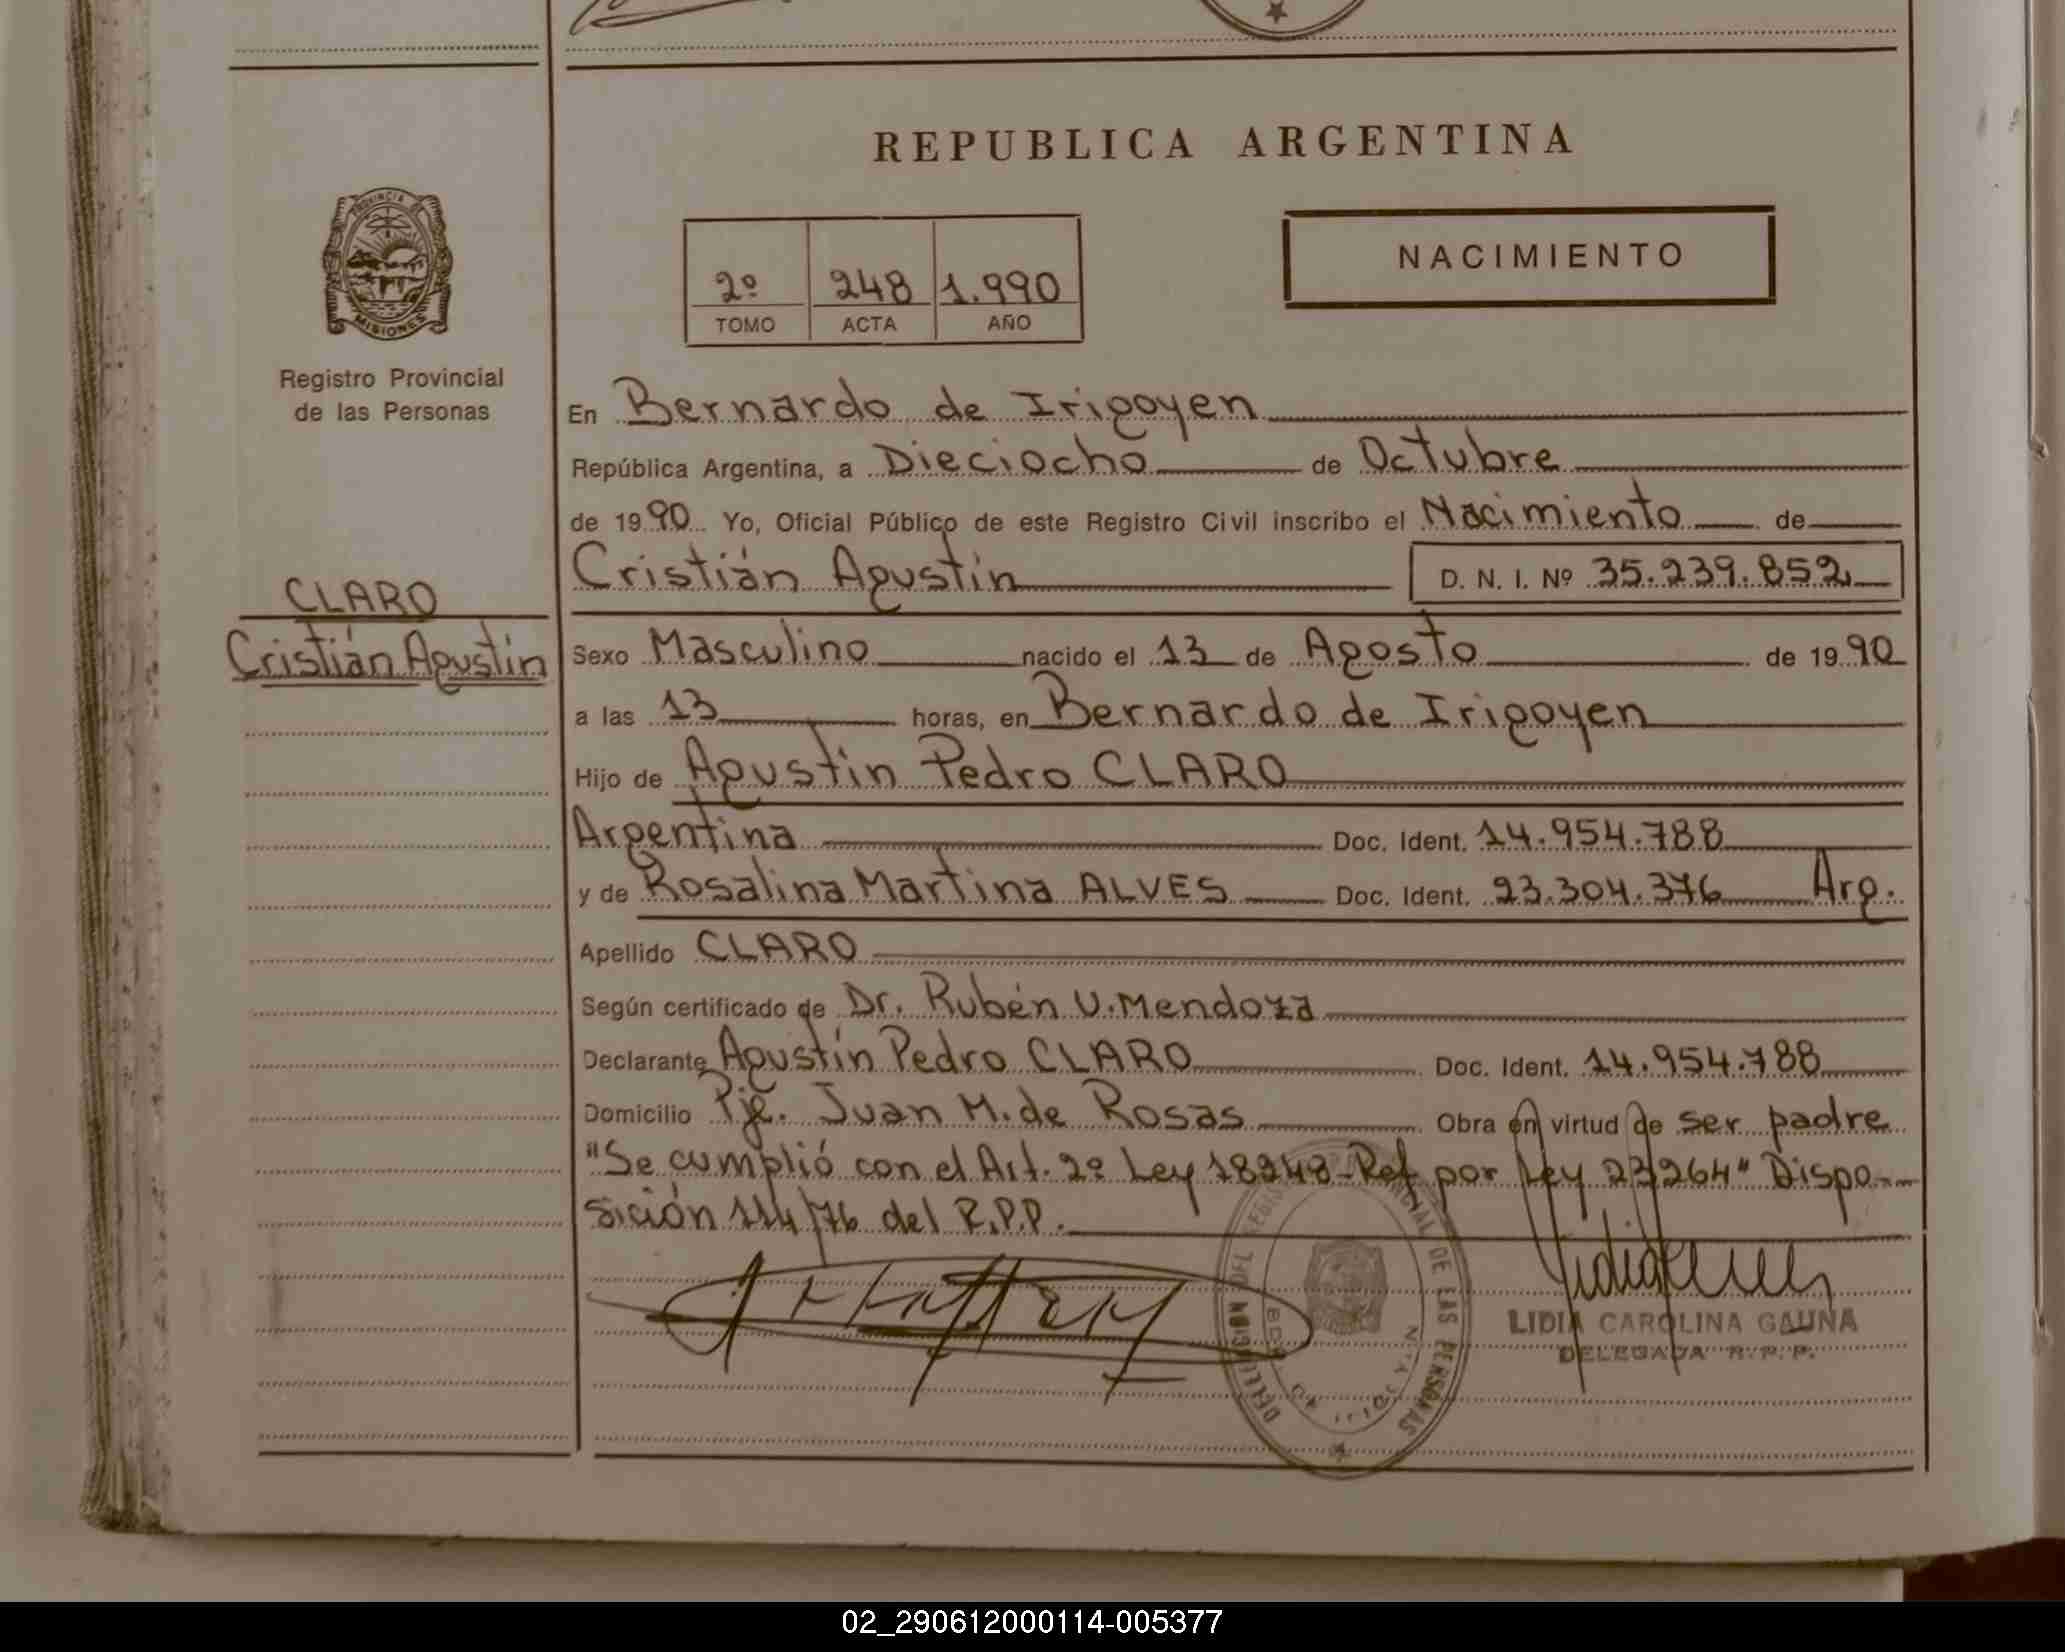 REPUBLICA ARGENTINA
2º 248 1.990
TOMO ACTA AÑO
NACIMIENTO
PROVINCIA DE
MISIONES
Registro Provincial
de las Personas
CLARO
Cristián Agustín
En Bernardo de Irigoyen
República Argentina, a Dieciocho de Octubre
de 1990 Yo, Oficial Público de este Registro Civil inscribo el Nacimiento de
Cristián Agustín D. N. I. Nº 35.239.852
Sexo Masculino nacido el 13 de Agosto de 1990
a las 13 horas, en Bernardo de Irigoyen
Hijo de Agustín Pedro CLARO
Argentina Doc. Ident. 14.954.788
y de Rosalina Martina ALVES Doc. Ident. 23.304.376 Arg.
Apellido CLARO
Según certificado de Dr. Rubén U. Mendoza
Declarante Agustín Pedro CLARO Doc. Ident. 14.954.788
Domicilio Pje. Juan M. de Rosas Obra en virtud de ser padre
"Se cumplió con el Art. 2º Ley 18248-Ref por Ley 23264" Dispo-
sición 114/76 del R.P.P.
LIDIA CAROLINA GAUNA
DELEGADA R.P.P.
02_290612000114-005377